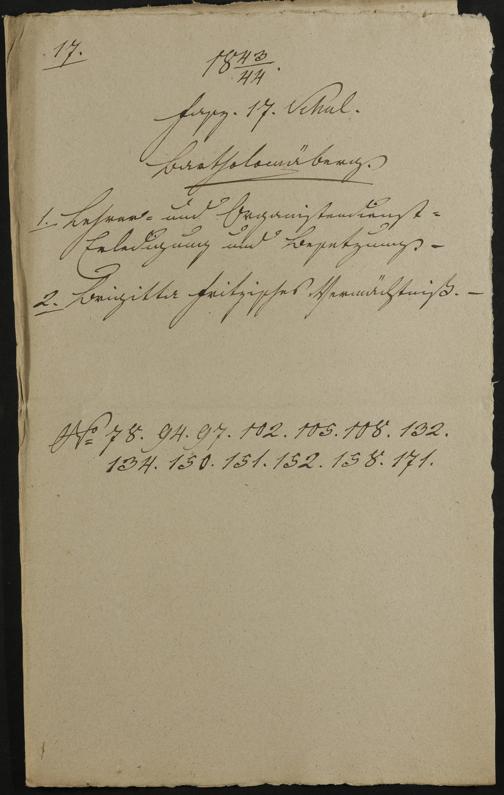 17.
18 43/44.
Fasz. 17. Schul.
Bartholomäberg.
1. Lehrer- und Organistendienst-
Erledigung und Besetzung. -
2. Brigitta Fritzisches Vermächtniß. -
No 78. 94. 97. 102. 105. 108. 132.
134. 150. 151. 152. 158. 171.